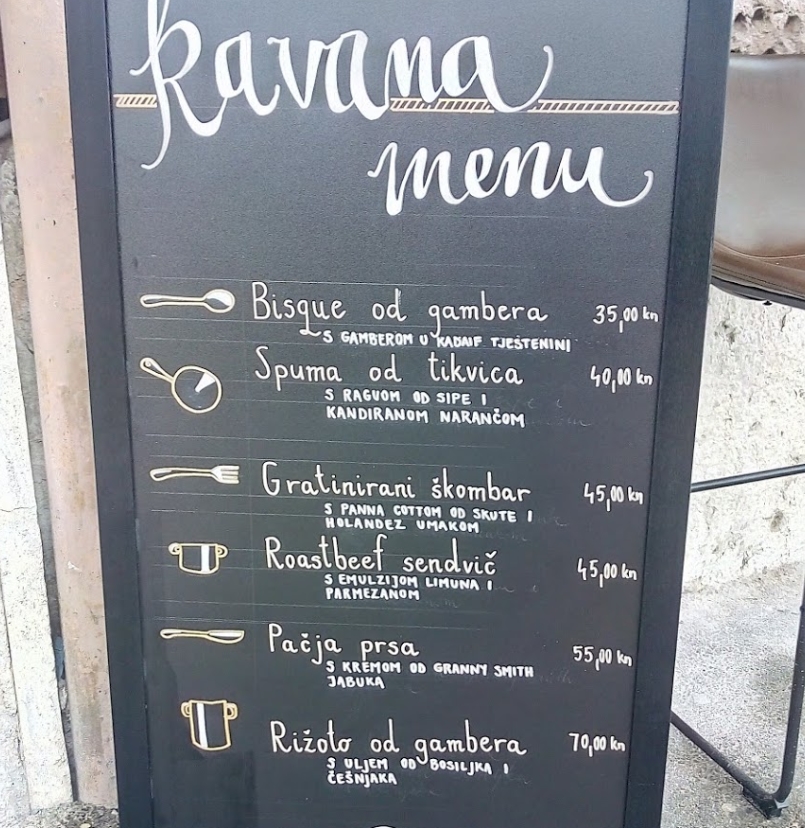 kavana
menu
Bisque od gambera 35,00 kn
S GAMBEROM U KADAIF TJESTENINI
Spuma od tikvica 40,00 kn
S RAGUOM OD SIPE I
KANDIRANOM NARANČOM
Gratinirani škombar 45,00 kn
S PANNA COTTOM OD SKUTE I
HOLANDEZ UMAKOM
Roastbeef sendvič 45,00 kn
S EMULZIJOM LIMUNA I
PARMEZANOM
Pačja prsa 55,00 kn
S KREMOM OD GRANNY SMITH
JABUKA
Rižoto od gambera 70,00 kn
S ULJEM OD BOSILJKA I
ČEŠNJAKA